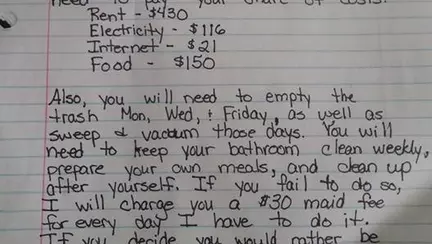 need to pay your share of costs.
Rent - $430
Electricity - $116
Internet - $21
Food - $150
Also, you will need to empty the
trash Mon, Wed, & Friday, as well as
sweep & vacuum those days. You will
need to keep your bathroom clean weekly,
prepare your own meals, and clean up
after yourself. If you fail to do so,
I will charge you a $30 maid fee
for every day I have to do it.
If you decide you would rather be